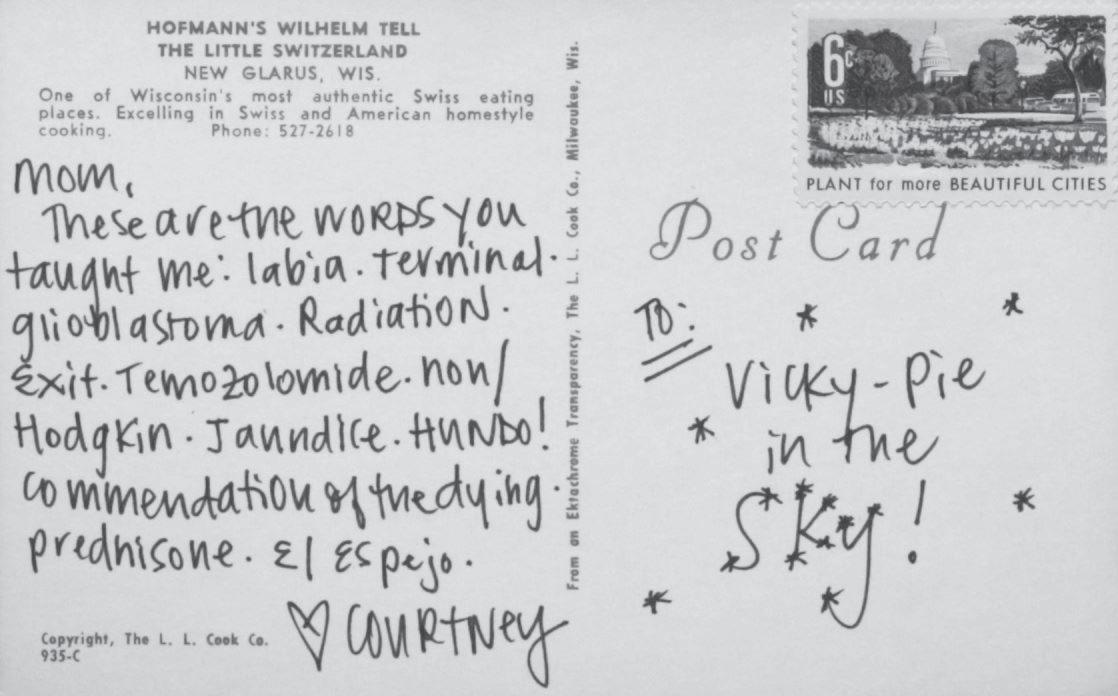 HOFMANN'S WILHELM TELL
THE LITTLE SWITZERLAND
NEW GLARUS, WIS.
One of Wisconsin's most authentic Swiss eating
places. Excelling in Swiss and American homestyle
cooking. Phone: 527-2618
Mom,
These are the WORDS you
taught me: labia. Terminal.
glioblastoma. Radiation.
Exit. Temozolomide. non/
Hodgkin. Jaundice. HUNDO!
commendation of the dying.
prednisone. El Espejo.
♡ COURTNEY
Copyright, The L. L. Cook Co.
935-C
From an Ektachrome Transparency, The L. L. Cook Co., Milwaukee, Wis.
6c
US
PLANT for more BEAUTIFUL CITIES
Post Card
TO:
Vicky-Pie
in the
SKy!